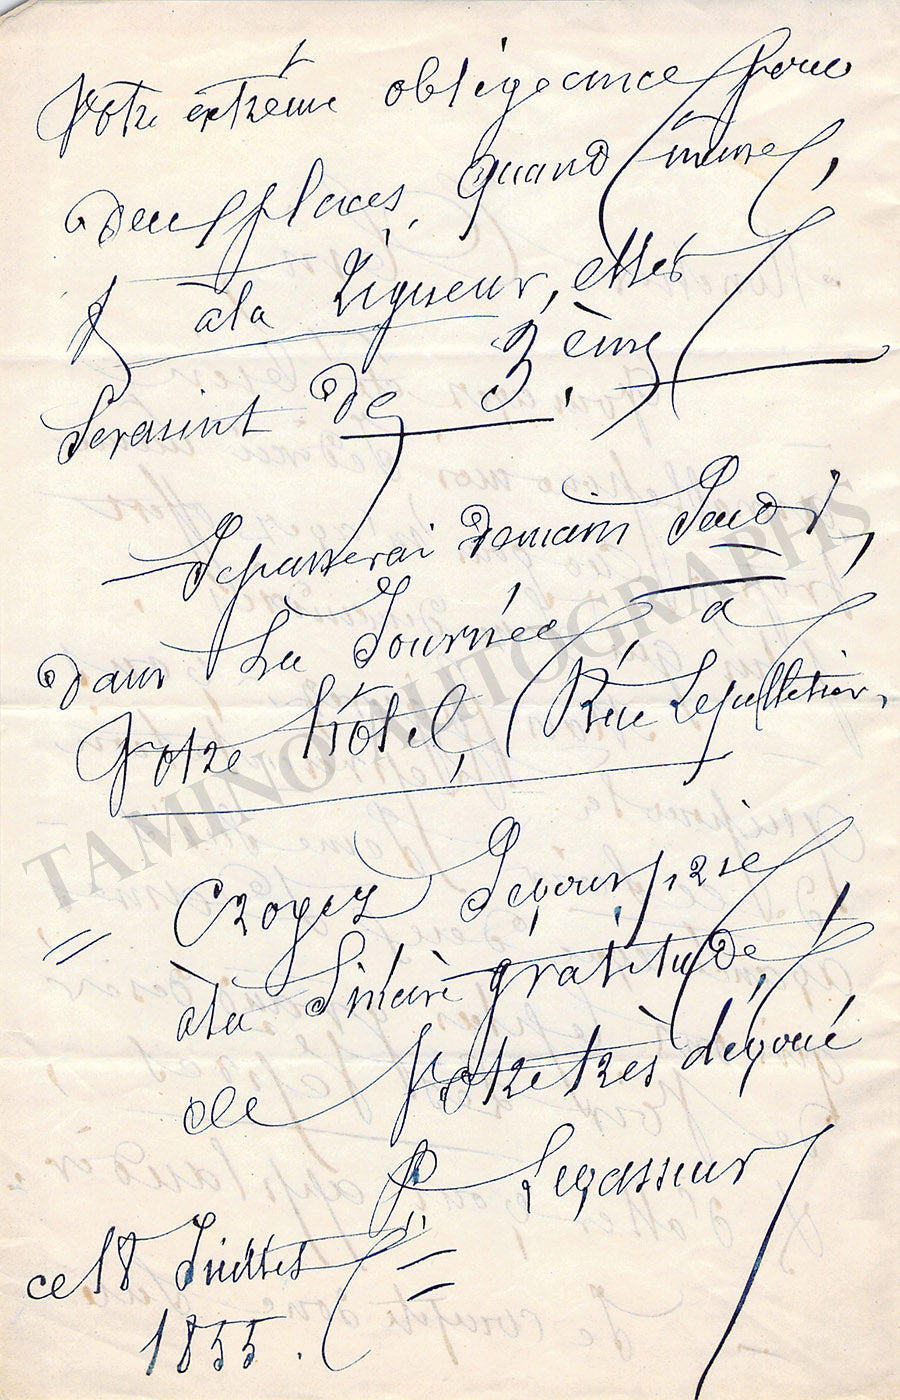 Votre extrême obligeance pour
deux places, quand même,
& à la rigueur, elles
seraient de 3.ème
— Je passerai demain Jeudi,
dans la Journée, à
Votre hôtel, Rue Lepelletier,
= Croyez Je vous prie
à la Sincère gratitude,
de Votre très dévoué
P. Levasseur
ce 18 Juillet =
1855.
TAMINO AUTOGRAPHS